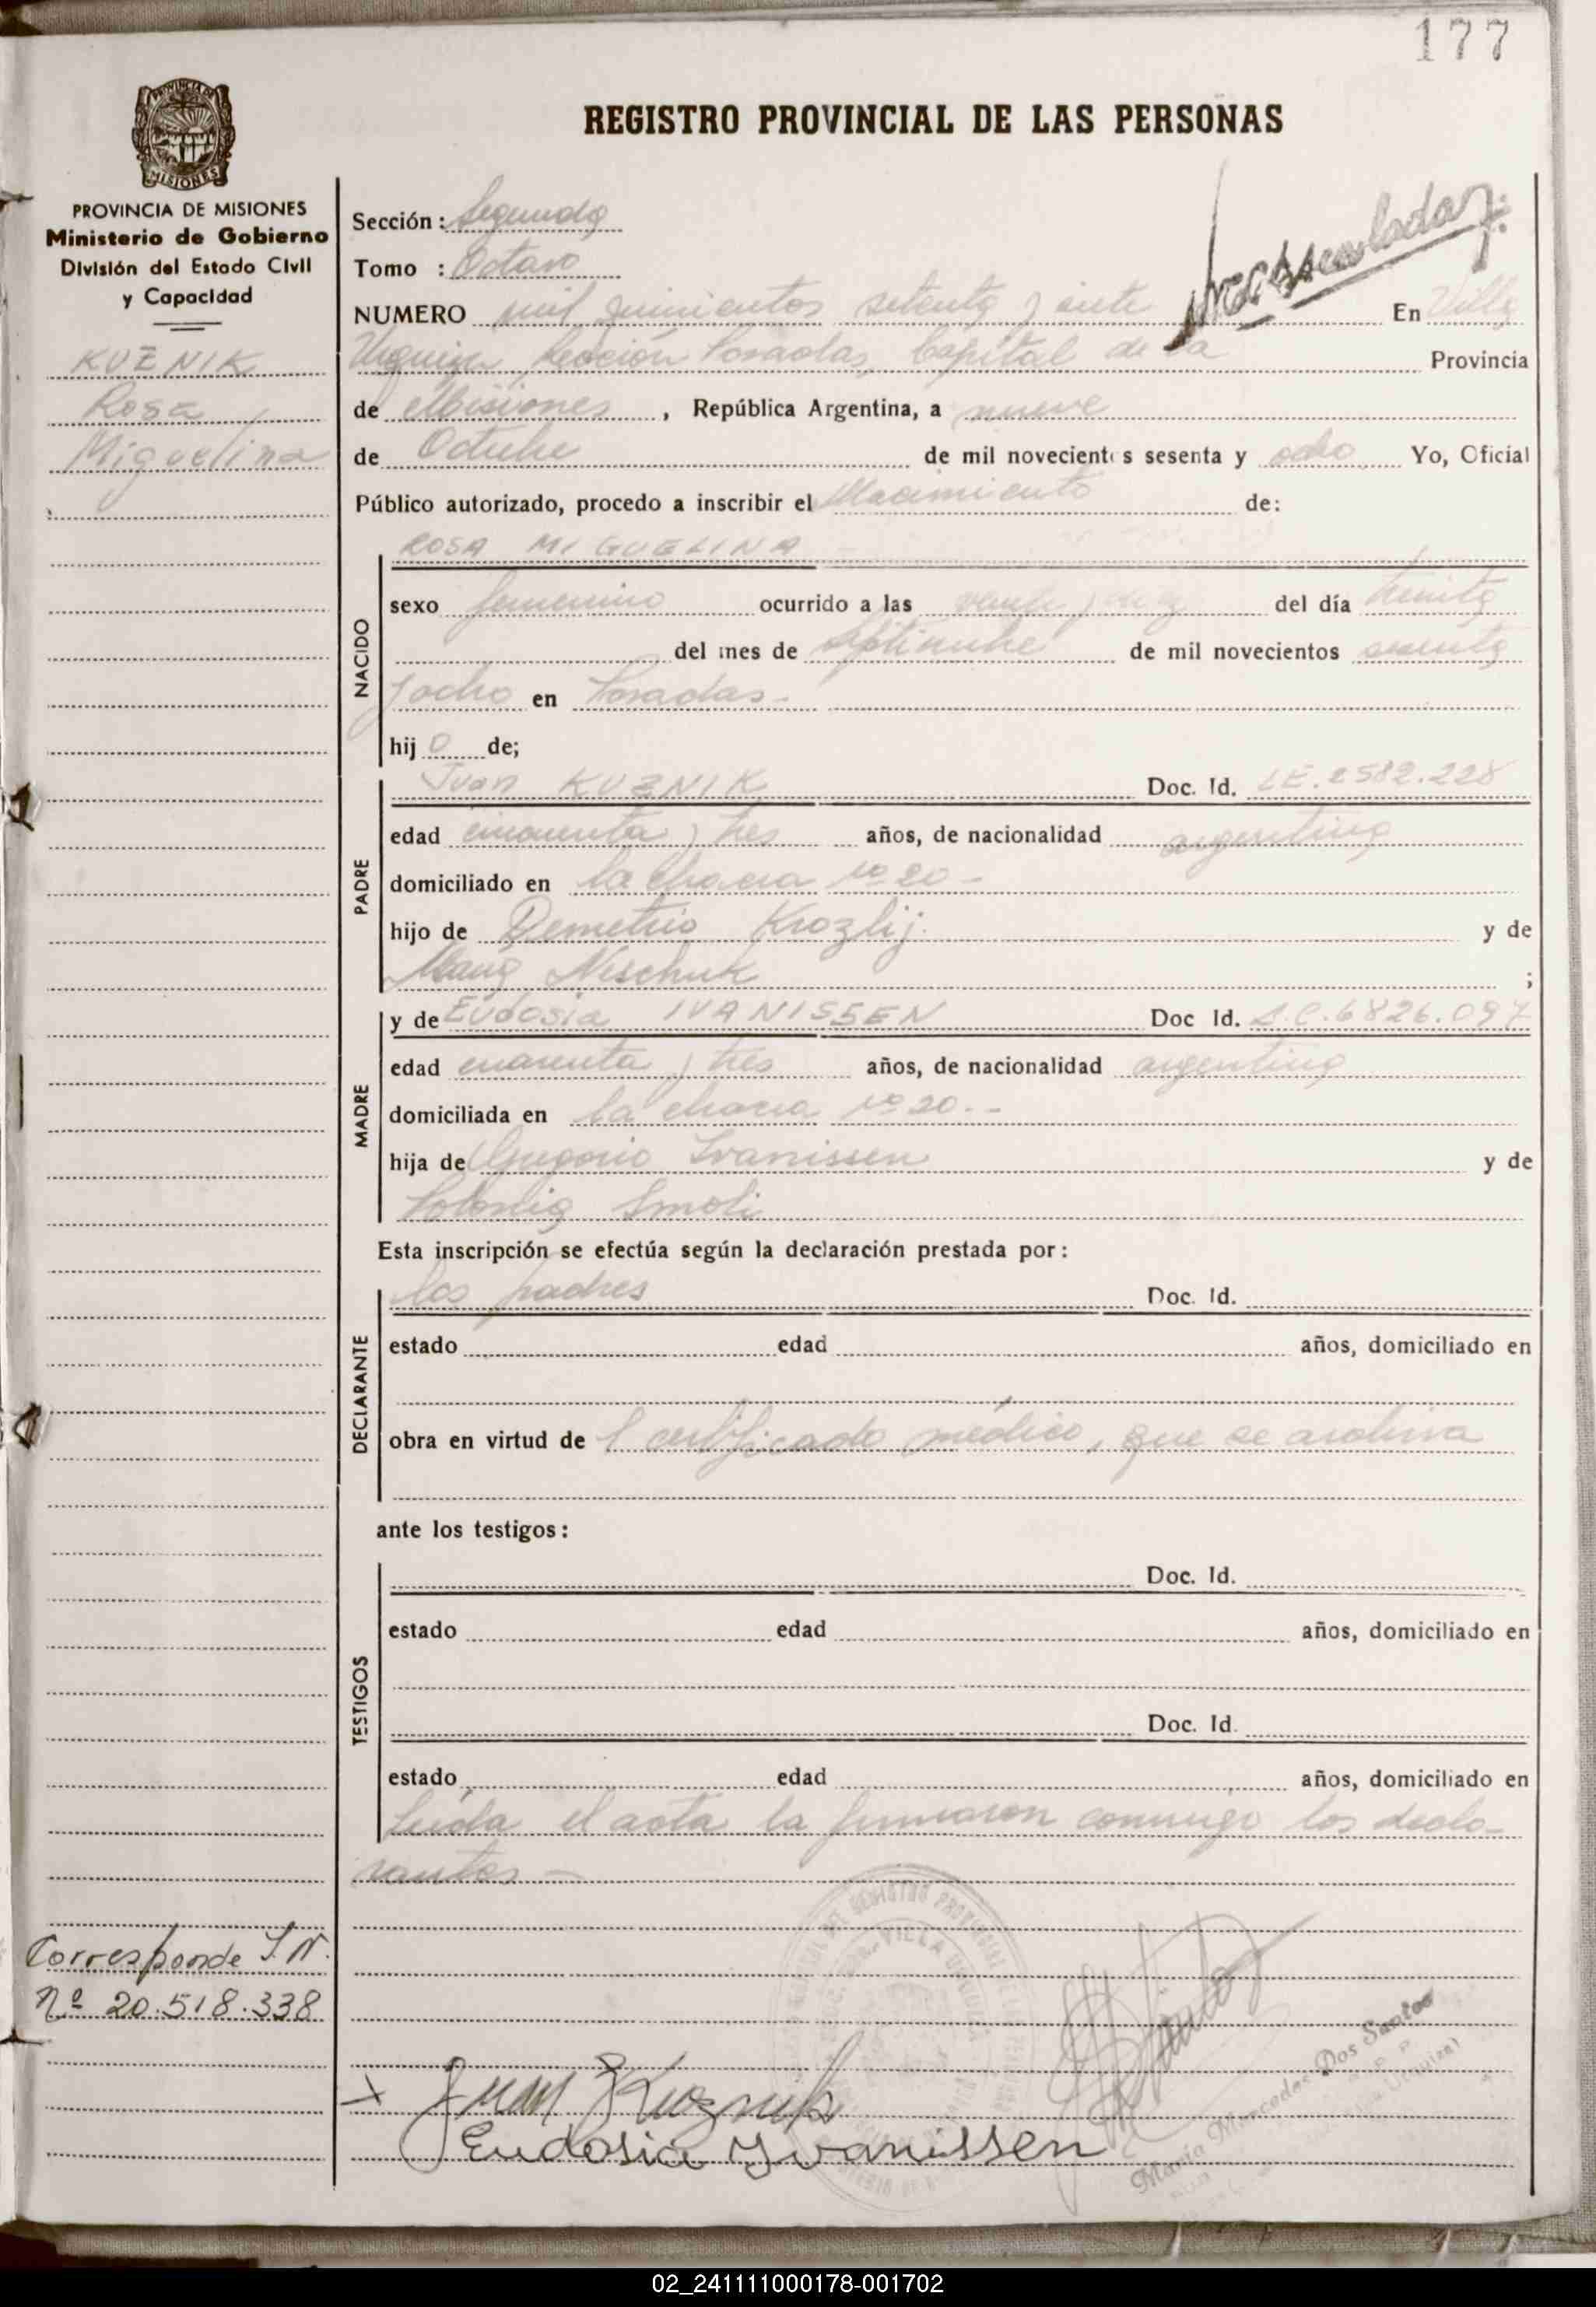 177
REGISTRO PROVINCIAL DE LAS PERSONAS
MISIONES
PROVINCIA DE MISIONES
Ministerio de Gobierno
División del Estado Civil
y Capacidad
KUZNIK
Rosa
Miguelina
Sección: Segunda
Tomo : Octavo
NUMERO mil quinientos setenta y siete En Villa
Urquiza, Sección Posadas, Capital de la Provincia
de Misiones, República Argentina, a nueve
de Octubre de mil novecientos sesenta y ocho Yo, Oficial
Público autorizado, procedo a inscribir el Nacimiento de:
NACIDO
ROSA MIGUELINA
sexo femenino ocurrido a las veinte y diez del día treinta
del mes de septiembre de mil novecientos sesenta
y ocho en Posadas.-
hij o de;
PADRE
Juan KUZNIK Doc. Id. LE.2582.228
edad cincuenta y tres años, de nacionalidad argentina
domiciliado en la chacra nº 20 -
hijo de Demetrio Krozlij. y de
María Neschuk ;
MADRE
y de Eudosia IVANISSEN Doc Id. L.C.6826.097
edad cuarenta y tres años, de nacionalidad argentina
domiciliada en la chacra nº 20.-
hija de Gregorio Ivanissen y de
Polonia Smoli
Esta inscripción se efectúa según la declaración prestada por:
DECLARANTE
los padres Doc. Id.
estado edad años, domiciliado en
obra en virtud de l certificado médico, que se archiva
ante los testigos:
TESTIGOS
Doc. Id.
estado edad años, domiciliado en
Doc. Id.
estado edad años, domiciliado en
Leída el acta la firmaron conmigo los decla-
rantes -
Corresponde I.N.
nº 20.518.338
Juan Kuznik
Eudosia Ivanissen
María Mercedes Dos Santos
02_241111000178-001702